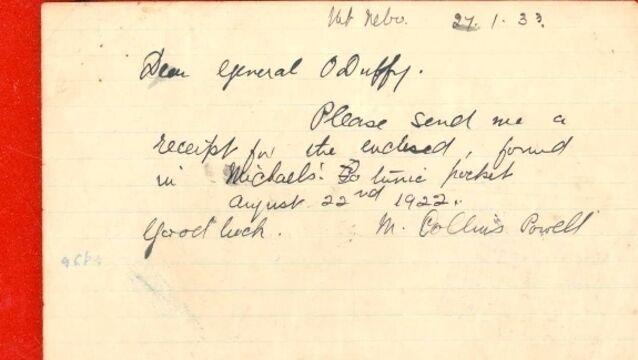 Mt Nebo. 27.1.33.
Dear General O Duffy.
Please send me a
receipt for the enclosed, found
in Michaels' tunic pocket
August 22nd 1922.
Good luck. M. Collins Powell